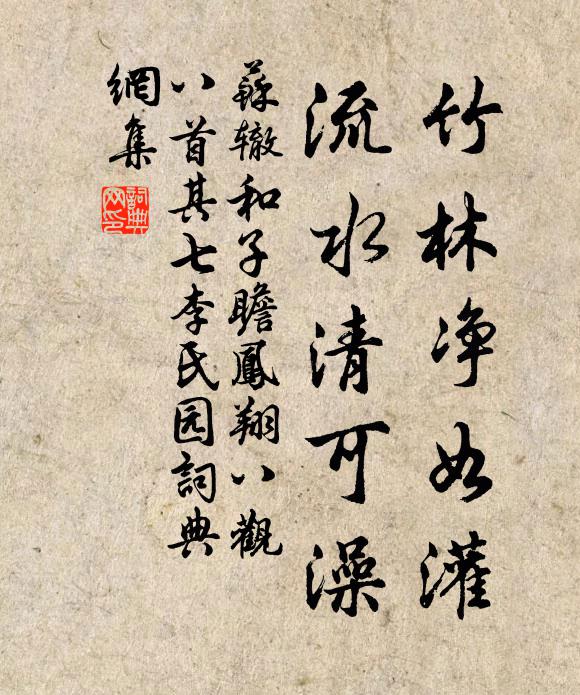 竹林净如灌
流水清可澡
蘇辙和子瞻鳳翔八觀
八首其七李氏园詞典
網集
詞典網印